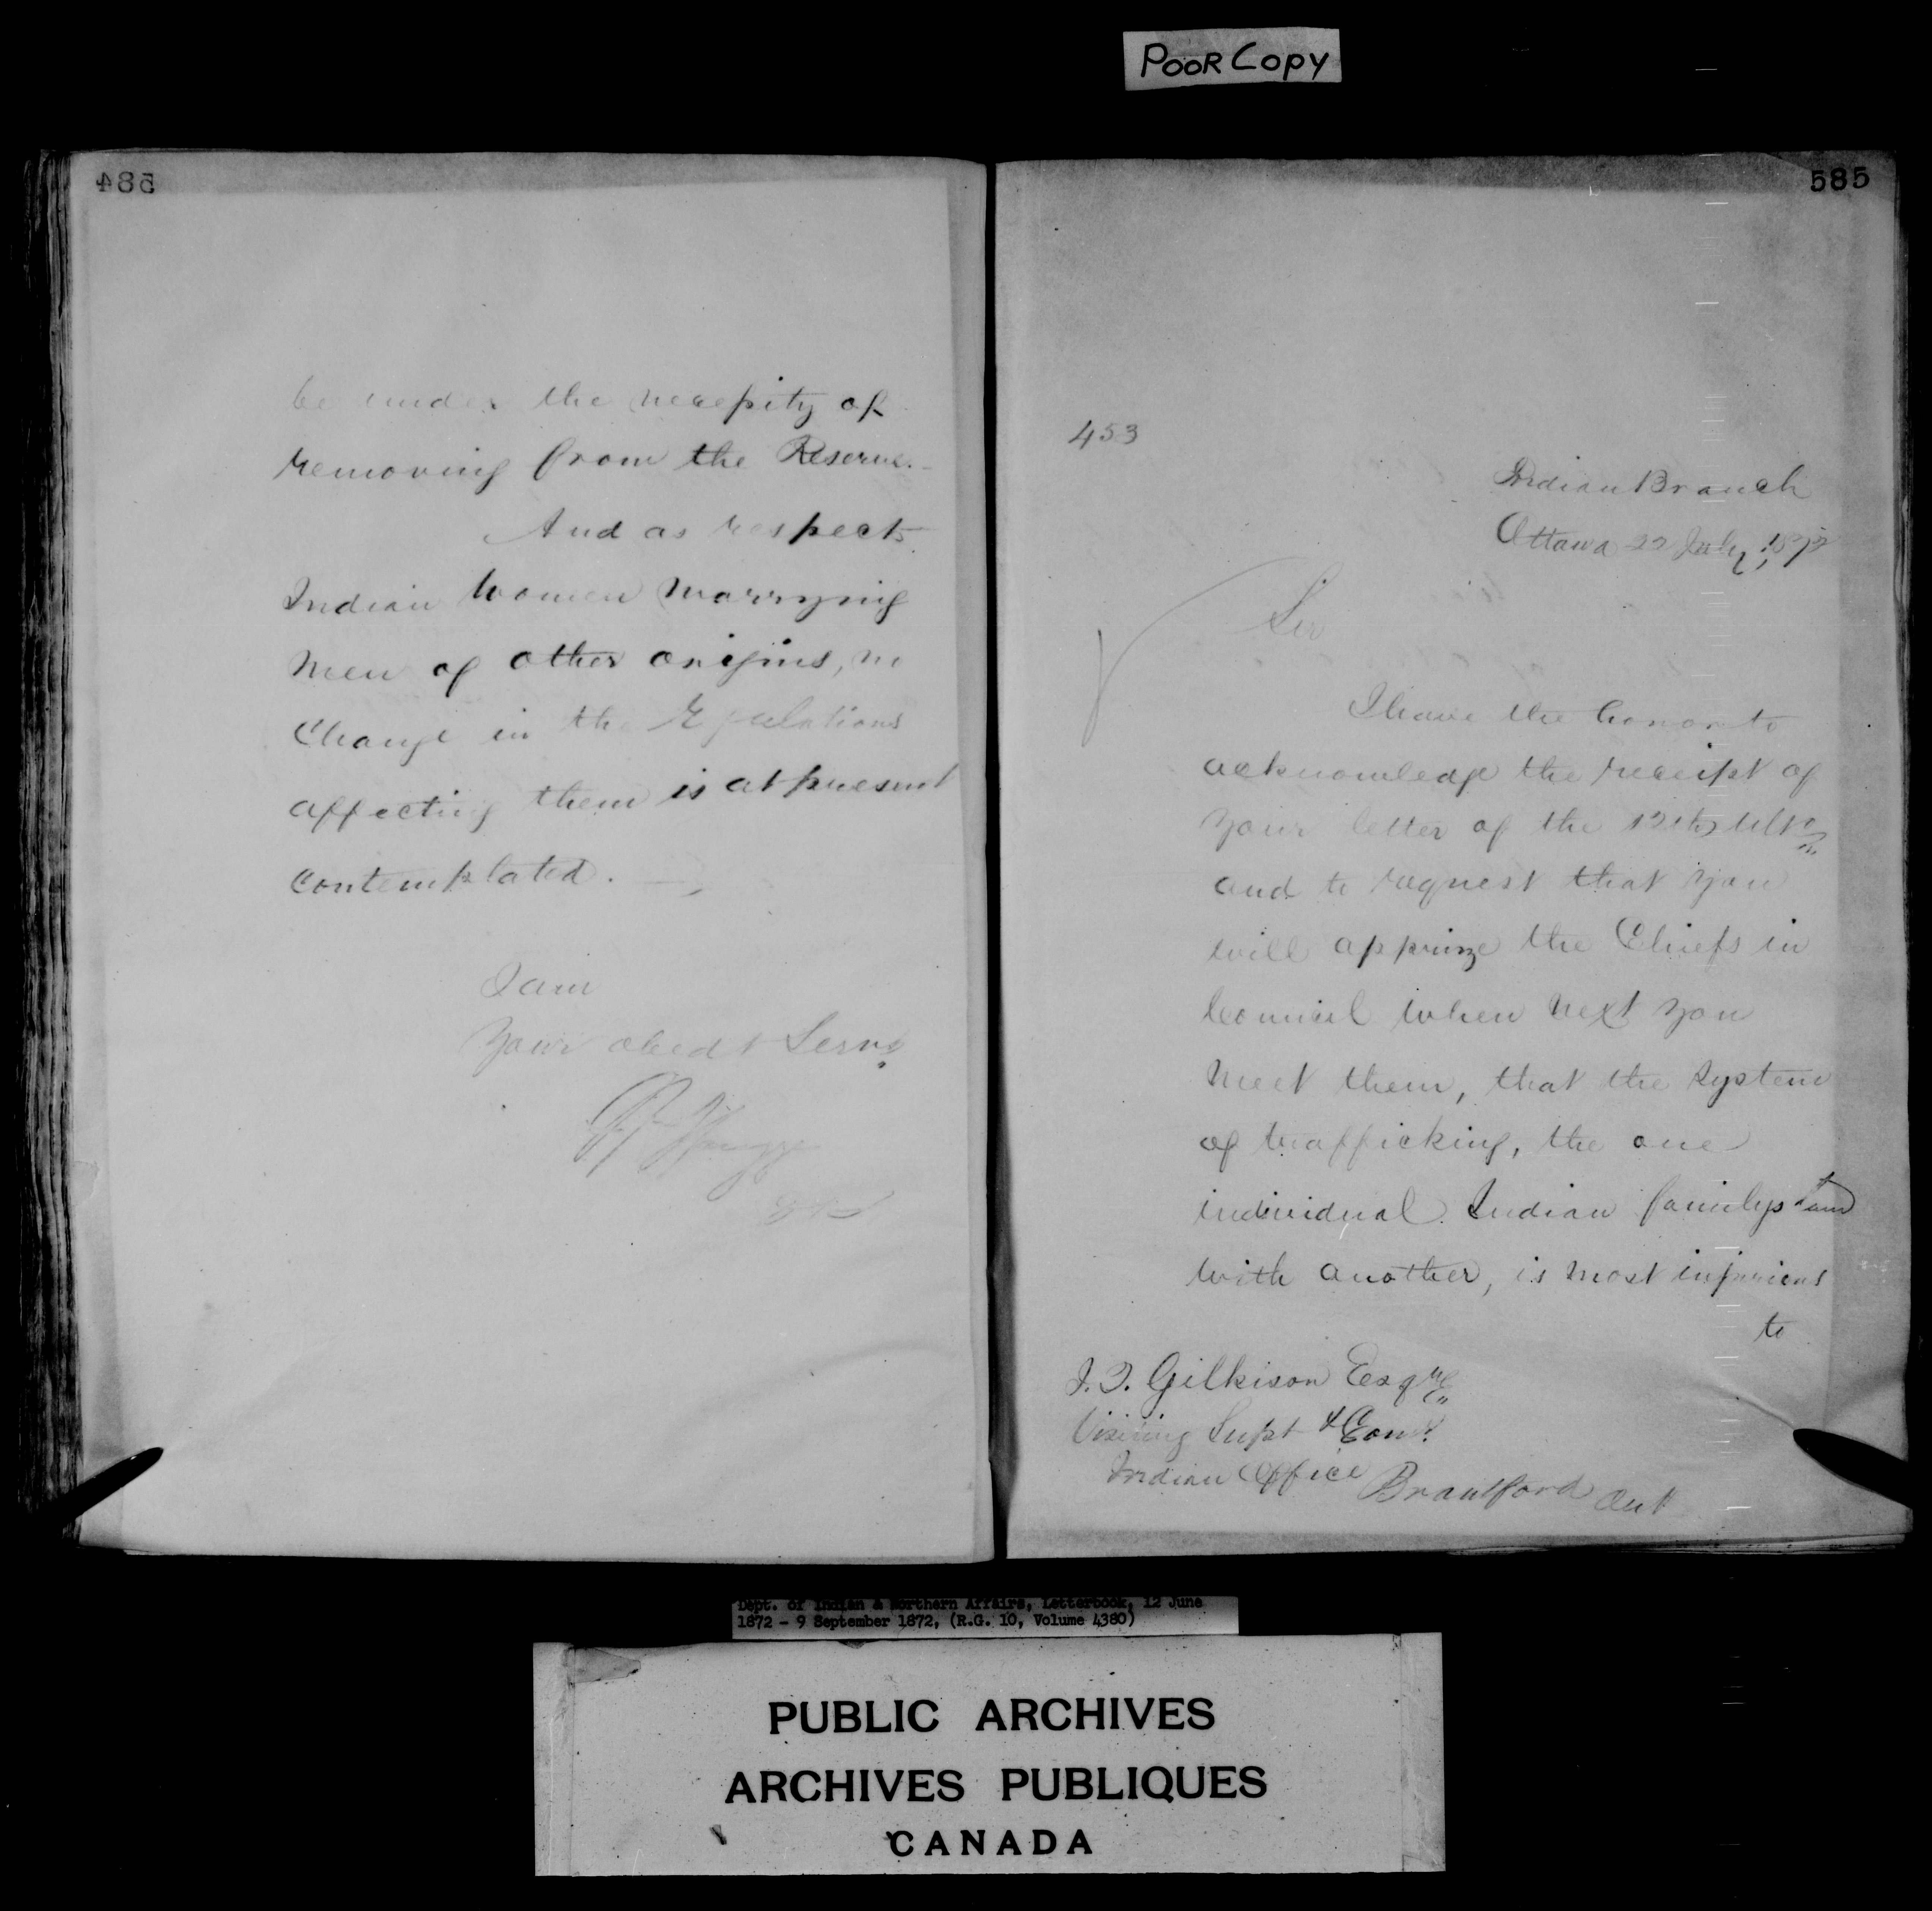 POOR COPY
584
be under the necessity of
removing from the Reserve.
And as respects
Indian women marrying
men of other origins, no
change in the Regulations
affecting them is at present
contemplated.
I am
Your obedt Servt
585
453
Indian Branch
Ottawa 22 July, 1872
Sir
I have the honor to
acknowledge the receipt of
your letter of the 12th Ulto
and to request that you
will apprize the Chiefs in
Council when next you
meet them, that the system
of trafficking, the one
individual Indian family
with another, is most injurious
to
J. T. Gilkison Esqre
Visiting Supt & Comr
Indian Office Brantford Ont
Dept. of Indian & Northern Affairs, Letterbook, 12 June
1872 - 9 September 1872, (R.G. 10, Volume 4380)
PUBLIC ARCHIVES
ARCHIVES PUBLIQUES
CANADA